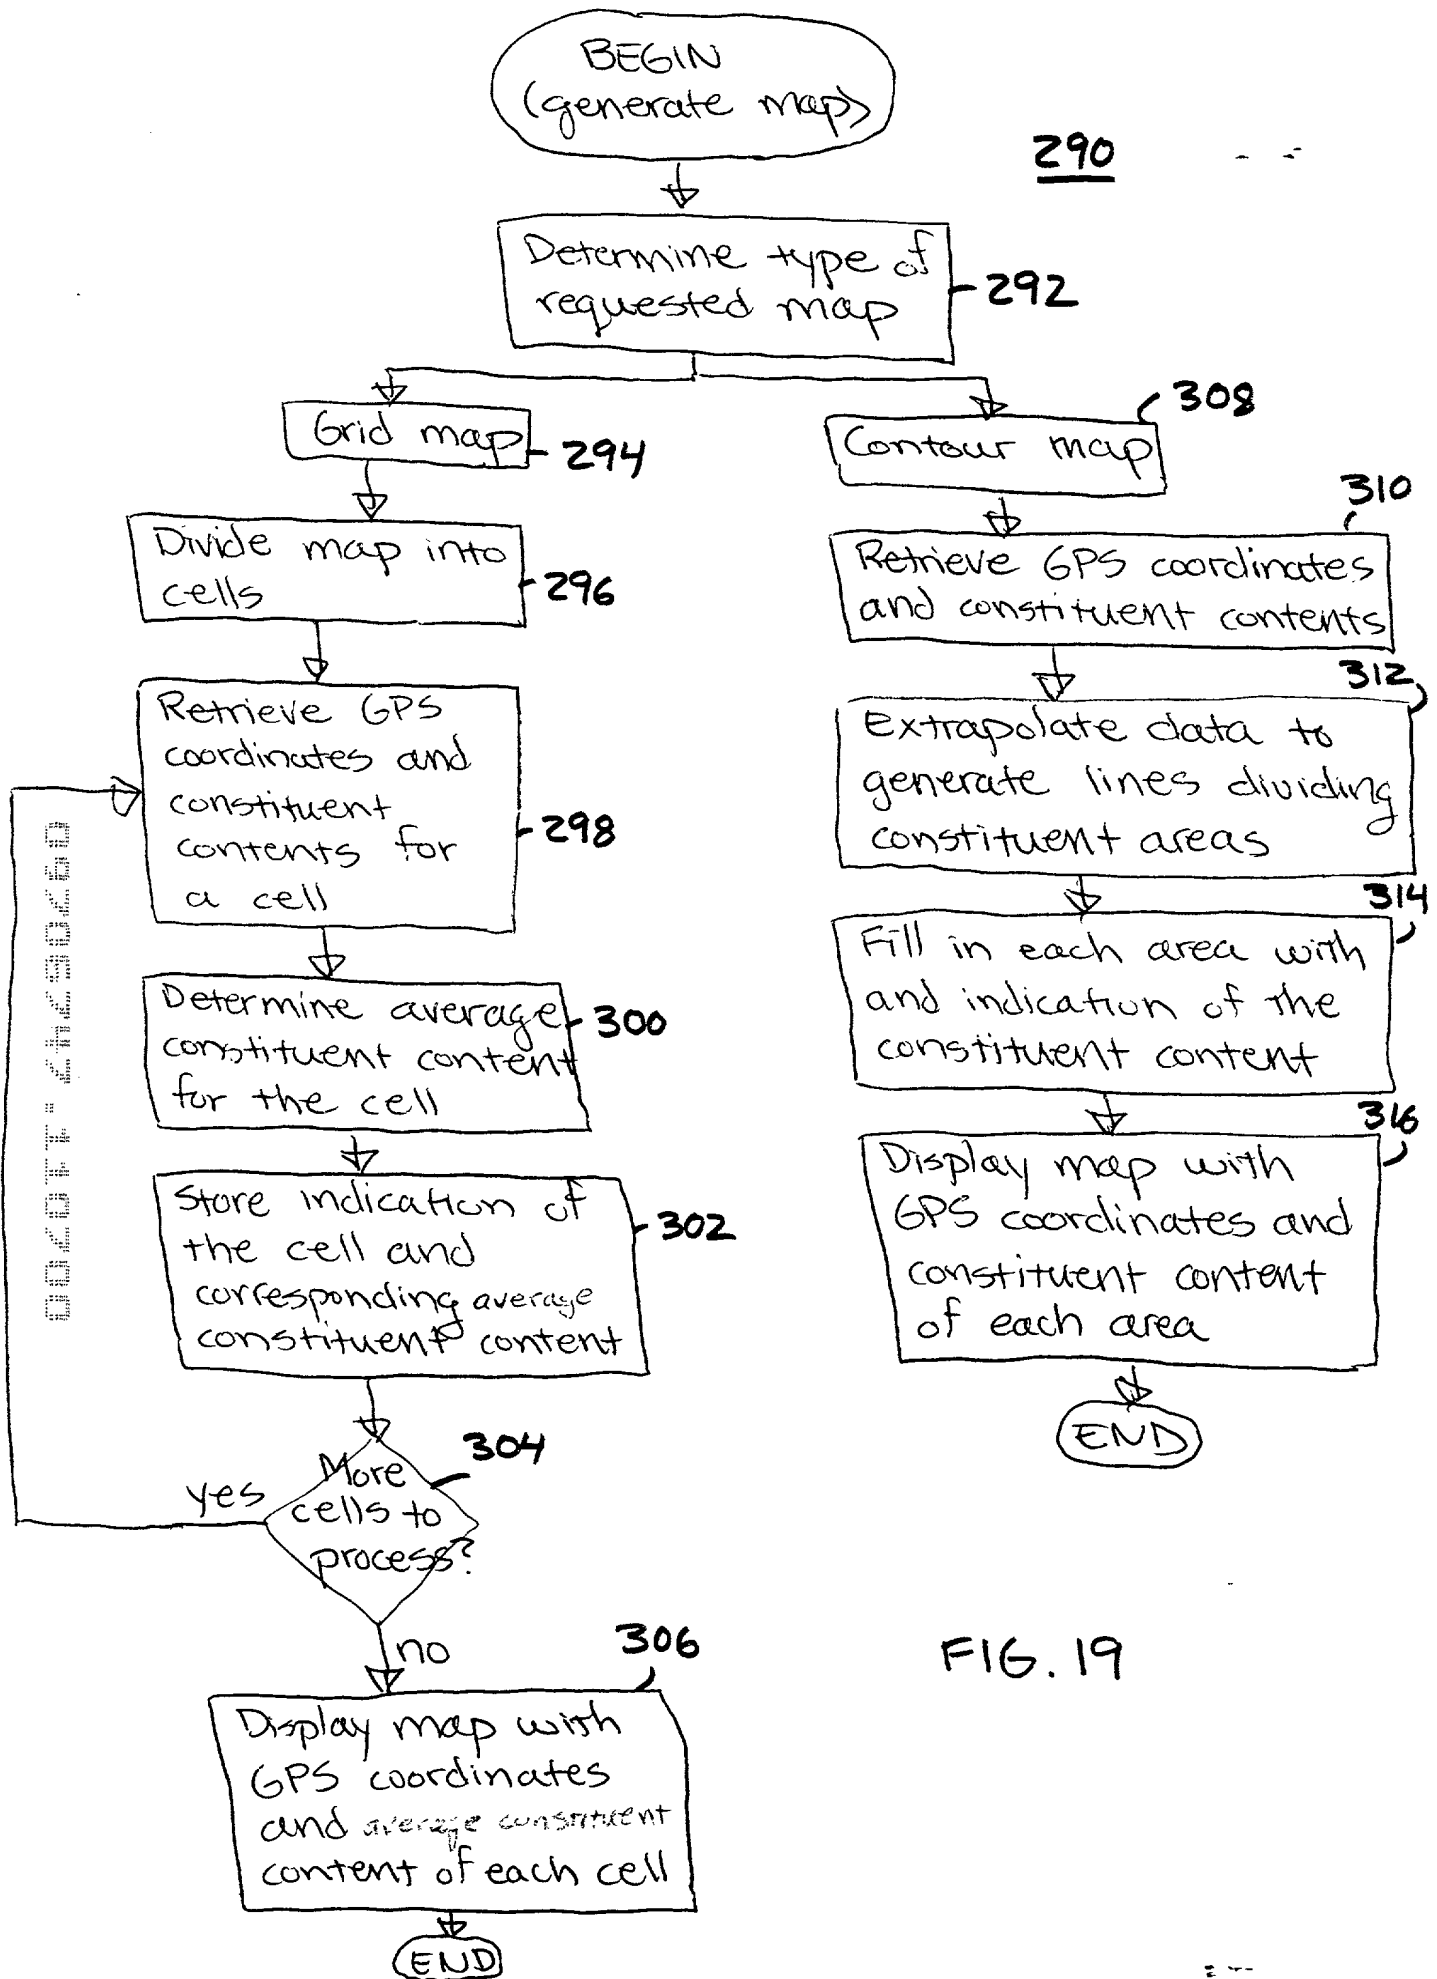 BEGIN
(generate map)
290
Determine type of
requested map
292
Grid map
294
Divide map into
cells
296
Retrieve GPS
coordinates and
constituent
contents for
a cell
298
Determine average
constituent content
for the cell
300
Store indication of
the cell and
corresponding average
constituent content
302
More
cells to
process?
304
yes
no
306
Display map with
GPS coordinates
and average constituent
content of each cell
END
308
Contour map
310
Retrieve GPS coordinates
and constituent contents
312
Extrapolate data to
generate lines dividing
constituent areas
314
Fill in each area with
and indication of the
constituent content
316
Display map with
GPS coordinates and
constituent content
of each area
END
FIG. 19